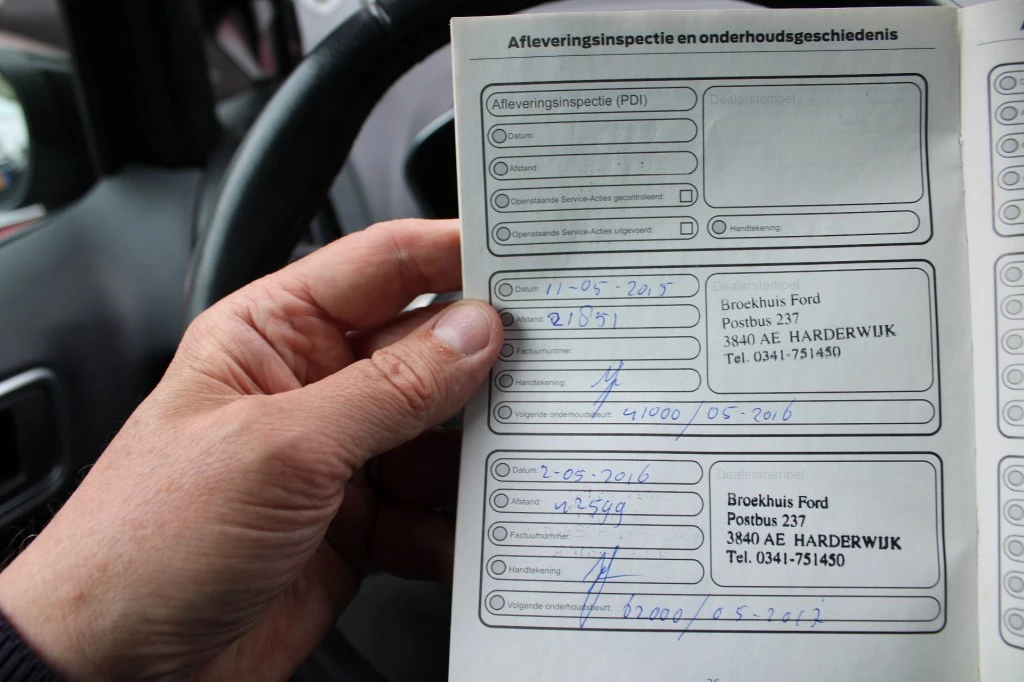 Afleveringsinspectie en onderhoudsgeschiedenis
Afleveringsinspectie (PDI)
Dealerstempel
Datum:
Afstand:
Openstaande Service-Acties gecontroleerd:
Openstaande Service-Acties uitgevoerd:
Handtekening:
Datum: 11-05-2015
Afstand: 21851
Factuurnummer:
Handtekening:
Volgende onderhoudsbeurt: 41000/05-2016
Dealerstempel
Broekhuis Ford
Postbus 237
3840 AE HARDERWIJK
Tel. 0341-751450
Datum: 2-05-2016
Afstand: 42599
Factuurnummer:
Handtekening:
Volgende onderhoudsbeurt: 62000/05-2017
Dealerstempel
Broekhuis Ford
Postbus 237
3840 AE HARDERWIJK
Tel. 0341-751450